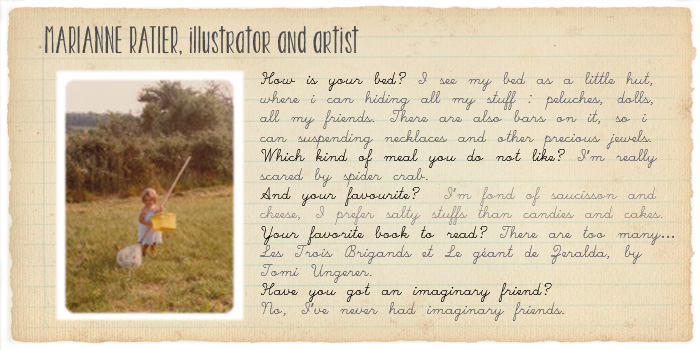 MARIANNE RATIER, illustrator and artist
How is your bed? I see my bed as a little hut,
where i can hiding all my stuff : peluches, dolls,
all my friends. There are also bars on it, so i
can suspending necklaces and other precious jewels.
Which kind of meal you do not like? I'm really
scared by spider crab.
And your favourite? I'm fond of saucisson and
cheese, I prefer salty stuffs than candies and cakes.
Your favorite book to read? There are too many...
Les Trois Brigands et Le géant de Zeralda, by
Tomi Ungerer.
Have you got an imaginary friend?
No, I've never had imaginary friends.